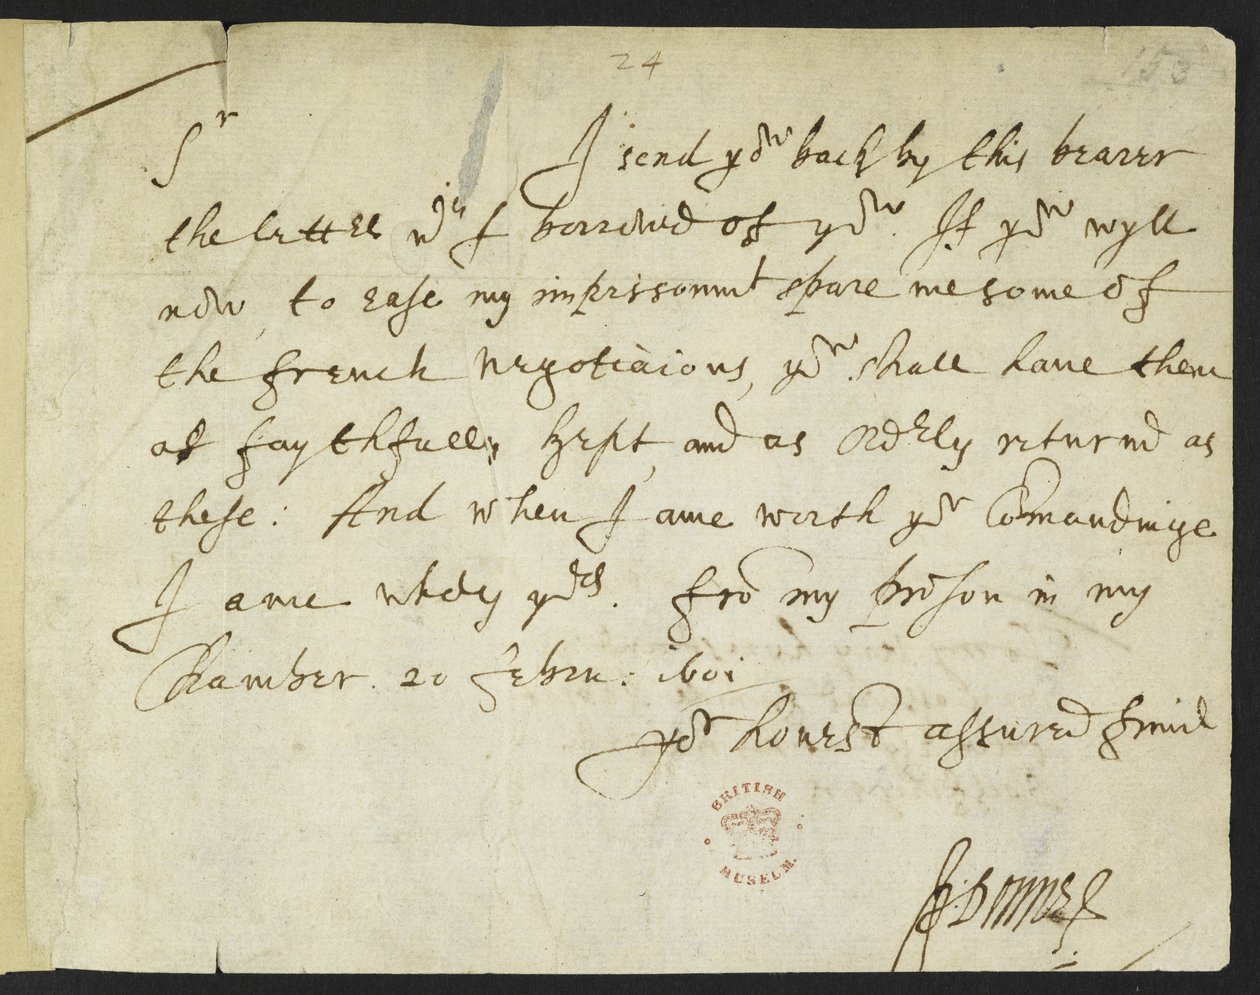 24
153
Sr I send yow back by this bearer
the letters wch I borrowed of yow. If yow wyll
now, to ease my imprisonmt spare me some of
the french Negotiacions, yow shall have them
as faythfully kept, and as orderly returnd as
these: And when I ame worth yor Comandinge
I ame wholy yors. fro my prison in my
Chamber. 20 Febru: 1601
yor honest assured frind
J: Donne.
BRITISH
MUSEUM.